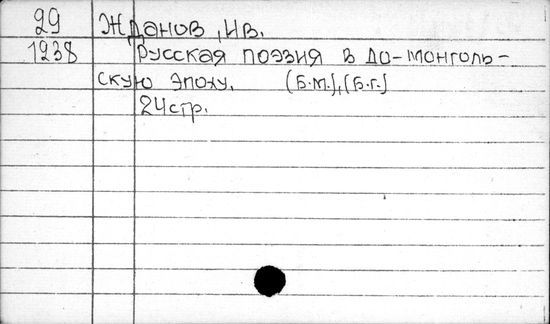 29 Жданов, Ив.
1938 Русская поэзия в до-монголь-
скую эпоху. (Б.м.),(Б.г.)
24 стр.